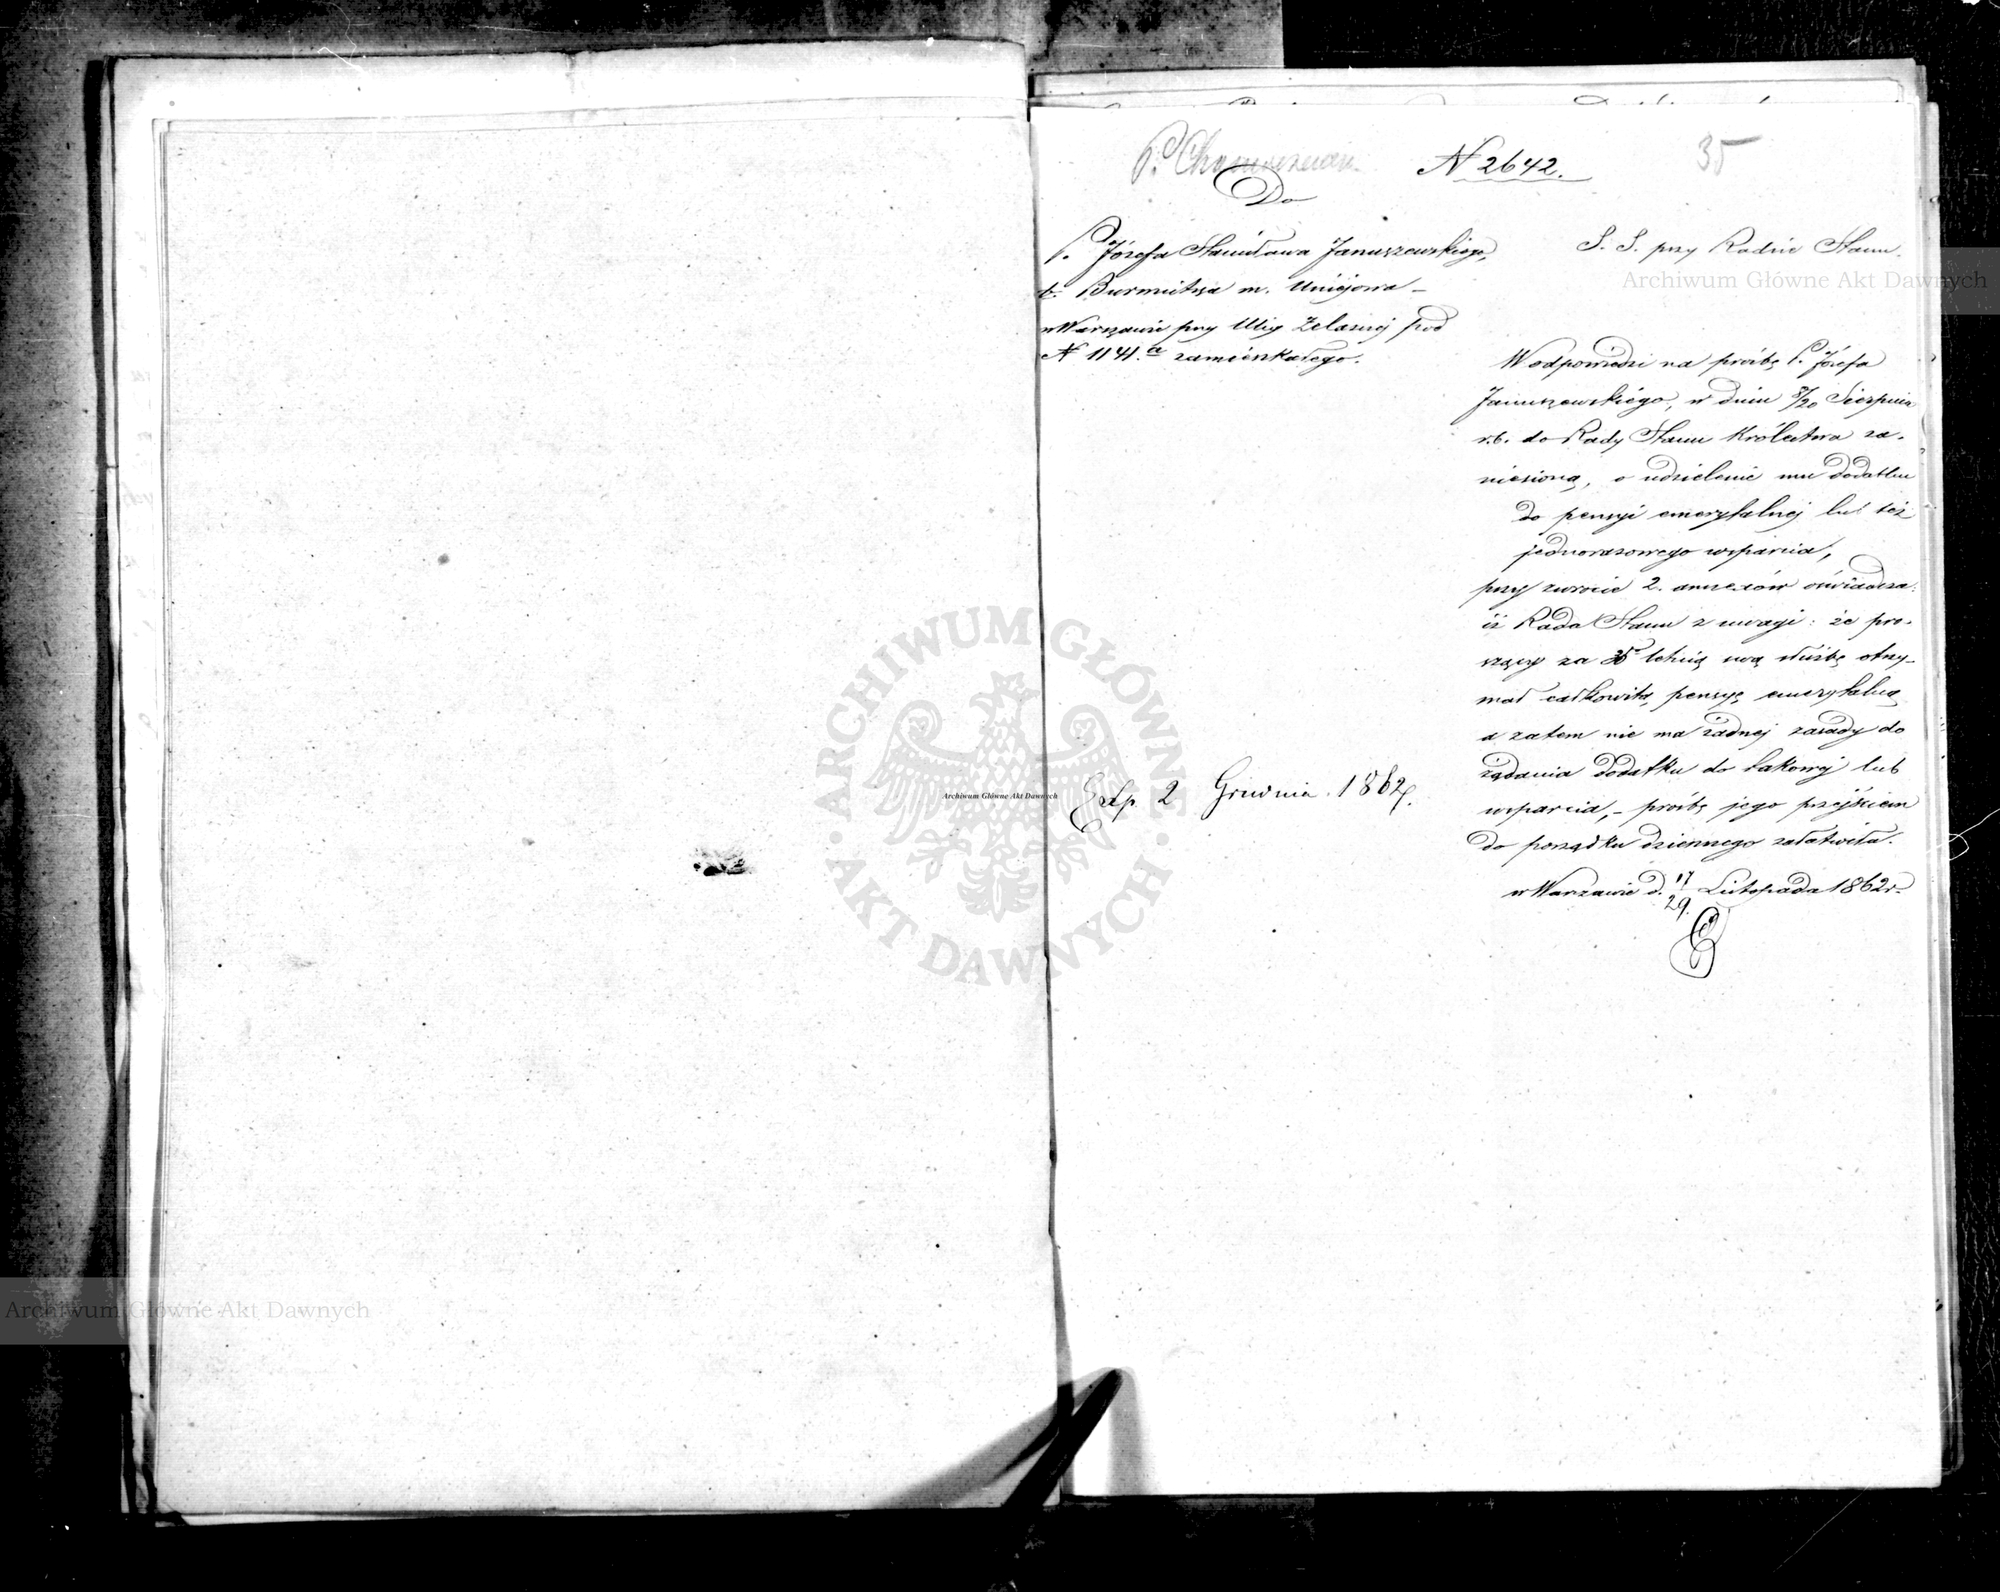 P. 
N 2642.
35
Do
P. Józefa Stanisława Januszewskiego,
b. Burmistrza m. Uniejowa –
w Warszawie przy Ulicy Żelaznej pod
N 1141.a zamieszkałego.
Exp. 2 Grudnia 1862 r.
S. S. przy Radzie Stanu.
W odpowiedzi na prośbę P. Józefa
Januszewskiego, w dniu 8/20 Sierpnia
r.b. do Rady Stanu Królestwa za-
niesioną, o udzielenie mu dodatku
do pensyi emerytalnej lub też
jednorazowego wsparcia,
przy zwrocie 2. annexów oświadcza:
iż Rada Stanu z uwagi: że pro-
szący za 35 letnią swą służbę otrzy-
mał całkowitą pensyę emerytalną
a zatem nie ma żadnej zasady do
żądania dodatku do takowej lub
wsparcia, – prośbę jego przejściem
do porządku dziennego załatwiła.
w Warszawie d. 17/29. Listopada 1862 r.
Archiwum Główne Akt Dawnych
ARCHIWUM GŁÓWNE
AKT DAWNYCH
Archiwum Główne Akt Dawnych
Archiwum Główne Akt Dawnych